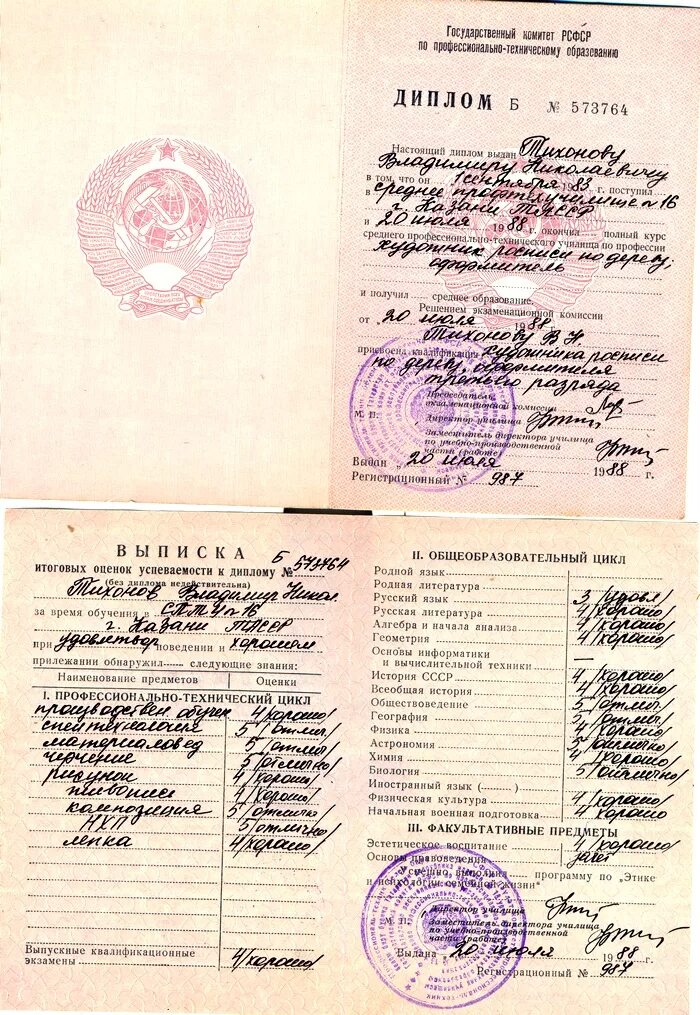 Государственный комитет РСФСР
по профессионально-техническому образованию
ДИПЛОМ Б № 573764
Настоящий диплом выдан Тихонову
Владимиру Николаевичу
в том, что он 1 сентября 1983 г. поступил
в среднее профтехучилище №16
г. Казани ТАССР
и 20 июля 1988 г. окончил полный курс
среднего профессионально-технического училища по профессии
художник росписи по дереву;
оформитель
и получил среднее образование.
Решением экзаменационной комиссии
от „20 июля 1988 г.
Тихонову В Н.
присвоена квалификация художника росписи
по дереву, оформителя
третьего разряда
Председатель
экзаменационной комиссии
М. П. Директор училища
Заместитель директора училища
по учебно-производственной
части (работе)
Выдан „20 июля 1988 г.
Регистрационный № 987
ВЫПИСКА
итоговых оценок успеваемости к диплому № Б 573764
(без диплома недействительна)
Тихонов Владимир Никол.
за время обучения в СПТУ №16
г. Казани ТАССР
при удовлетвор поведении и хорошем
прилежании обнаружил следующие знания:
Наименование предметов Оценки
I. ПРОФЕССИОНАЛЬНО-ТЕХНИЧЕСКИЙ ЦИКЛ
производствен обучен 4/хорошо/
спецтехнология 5/отлич/
материаловед 5/отлич/
черчение 5/отлично/
рисунок 4/хорошо/
живопись 4/хорошо/
композиция 5/отлично/
НХП 5/отлично/
лепка 4/хорошо/
Выпускные квалификационные
экзамены 4/хорошо/
II. ОБЩЕОБРАЗОВАТЕЛЬНЫЙ ЦИКЛ
Родной язык
Родная литература
Русский язык 3/удовл/
Русская литература 4/хорошо/
Алгебра и начала анализа 4/хорошо/
Геометрия 4/хорошо/
Основы информатики
и вычислительной техники —
История СССР 4/хорошо/
Всеобщая история 4/хорошо/
Обществоведение 5/отлич.
География 5/отлич.
Физика 4/хорошо
Астрономия 5/отлично/
Химия 4/хорошо/
Биология 5/отлично/
Иностранный язык ( )
Физическая культура 4/хорошо/
Начальная военная подготовка 4/хорошо
III. ФАКУЛЬТАТИВНЫЕ ПРЕДМЕТЫ
Эстетическое воспитание 4/хорошо/
Основы правоведения зачет
Успешно выполнил программу по „Этике
и психологии семейной жизни"
Директор училища
М. П. Заместитель директора училища
по учебно-производственной
части (работе)
Выдана „20 июля 1988 г.
Регистрационный № 987